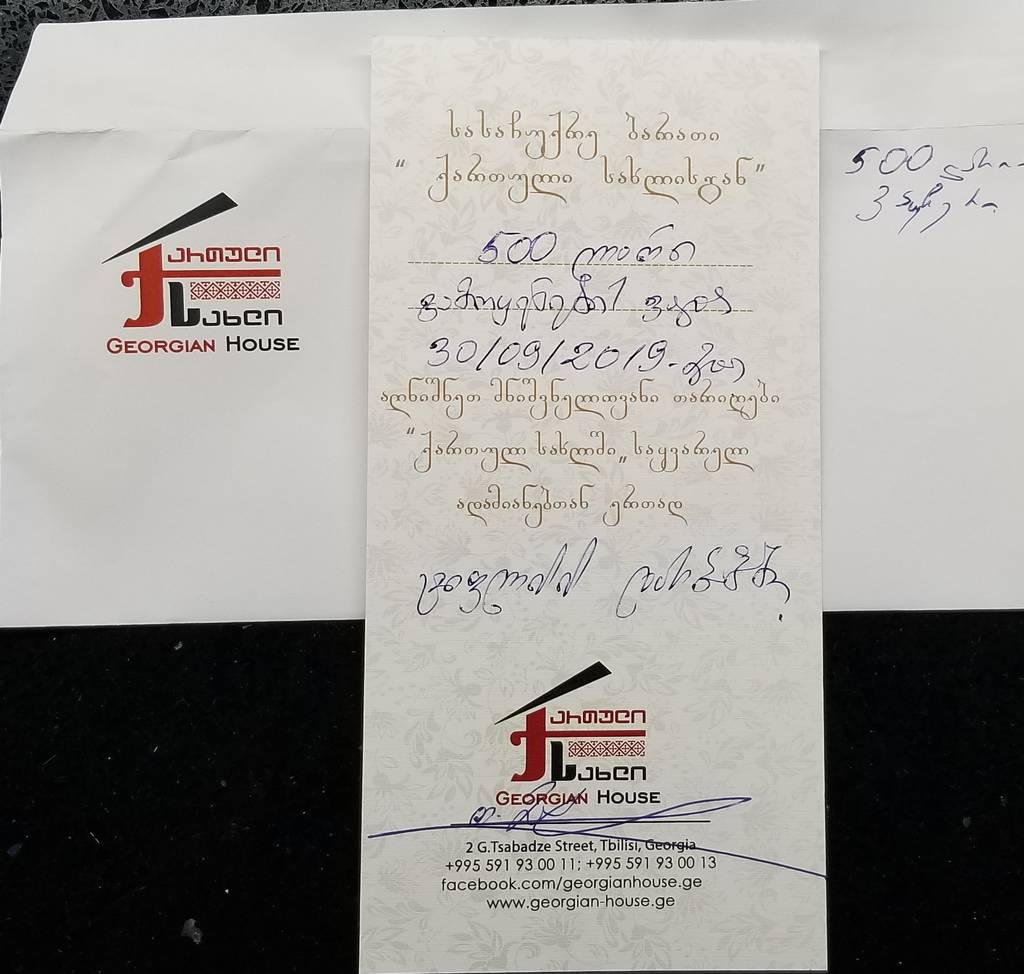 ქართული
სახლი
GEORGIAN HOUSE
სასაჩუქრე ბარათი
“ ქართული სახლისგან”
500 ლარი
გამოყენების ვადა
30/09/2019-მდე
აღნიშნეთ მნიშვნელოვანი თარიღები
“ქართულ სახლში„ საყვარელ
ადამიანებთან ერთად
ქართული
სახლი
GEORGIAN HOUSE
2 G.Tsabadze Street, Tbilisi, Georgia
+995 591 93 00 11; +995 591 93 00 13
facebook.com/georgianhouse.ge
www.georgian-house.ge
500